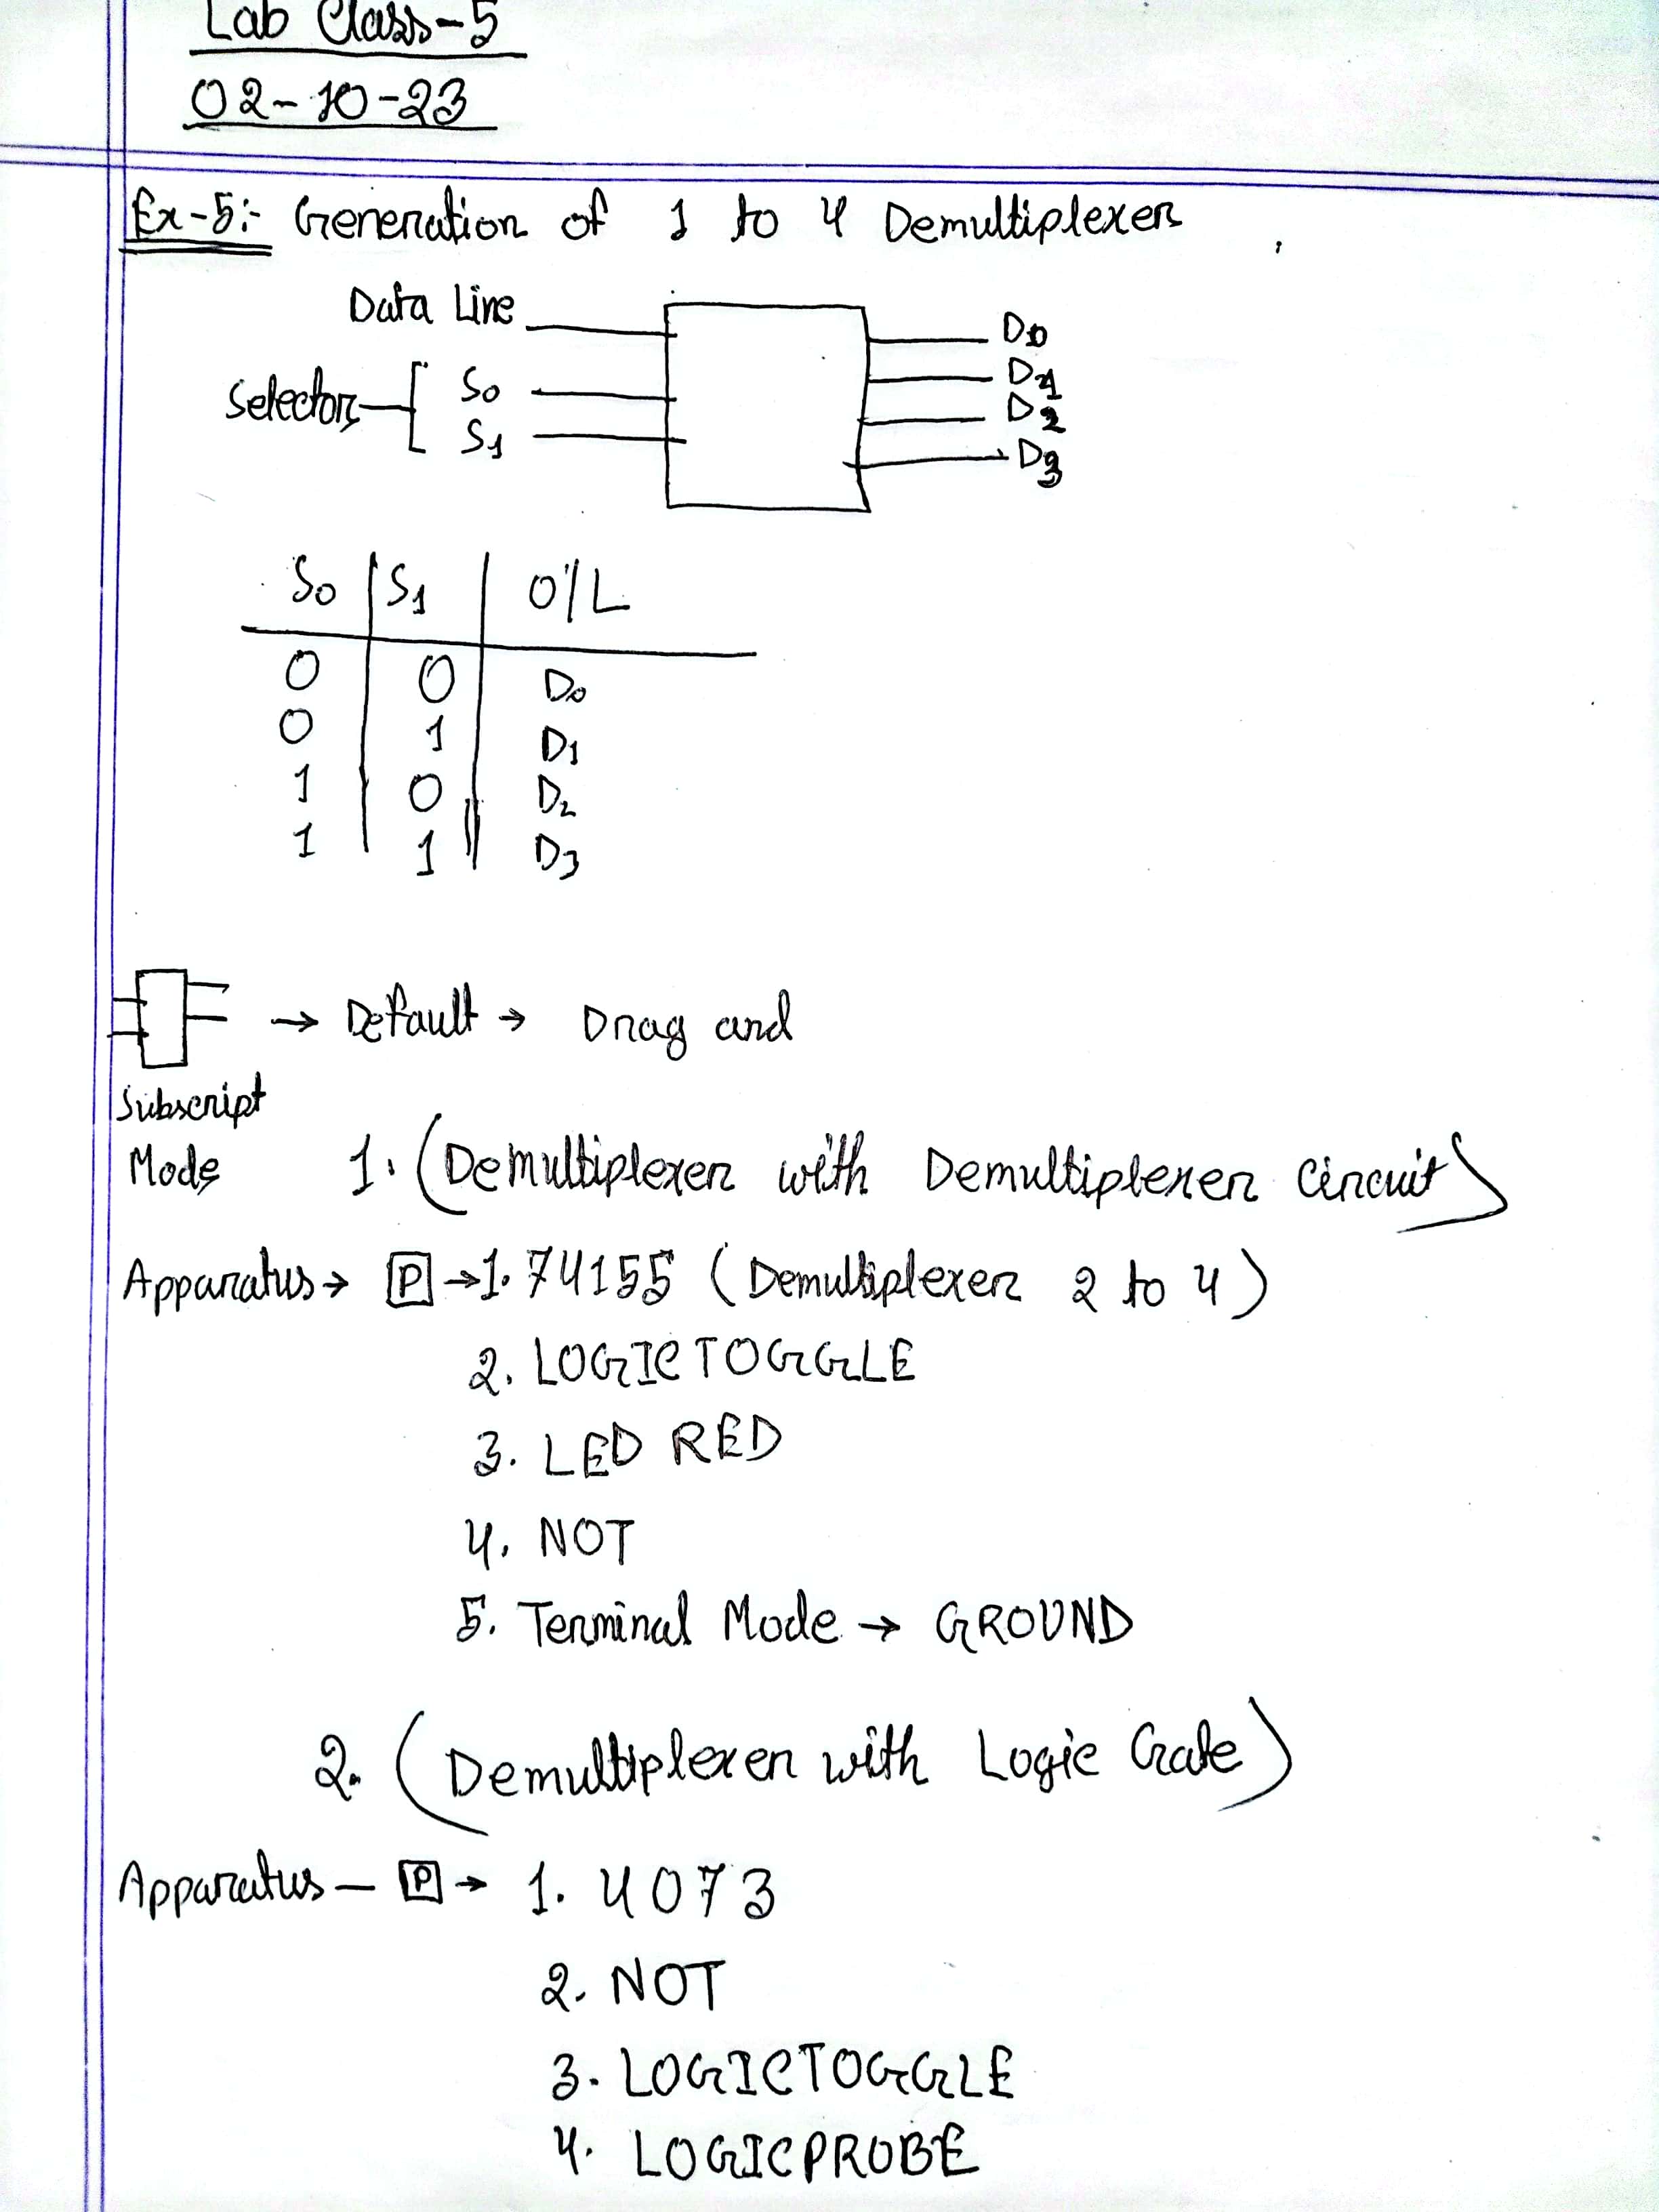 Lab Class-5
02-10-23
Ex-5:- Generation of 1 to 4 Demultiplexer
Data Line
D0
Selectors
S0
D1
D2
S1
D3
S0 S1 O/L
0 0 D0
0 1 D1
1 0 D2
1 1 D3
→ Default → Drag and
Subscript
Mode 1. (Demultiplexer with Demultiplexer Circuit)
Apparatus → P → 1. 74155 (Demultiplexer 2 to 4)
2. LOGICTOGGLE
3. LED RED
4. NOT
5. Terminal Mode → GROUND
2. (Demultiplexer with Logic Gate)
Apparatus — P → 1. 4073
2. NOT
3. LOGICTOGGLE
4. LOGICPROBE